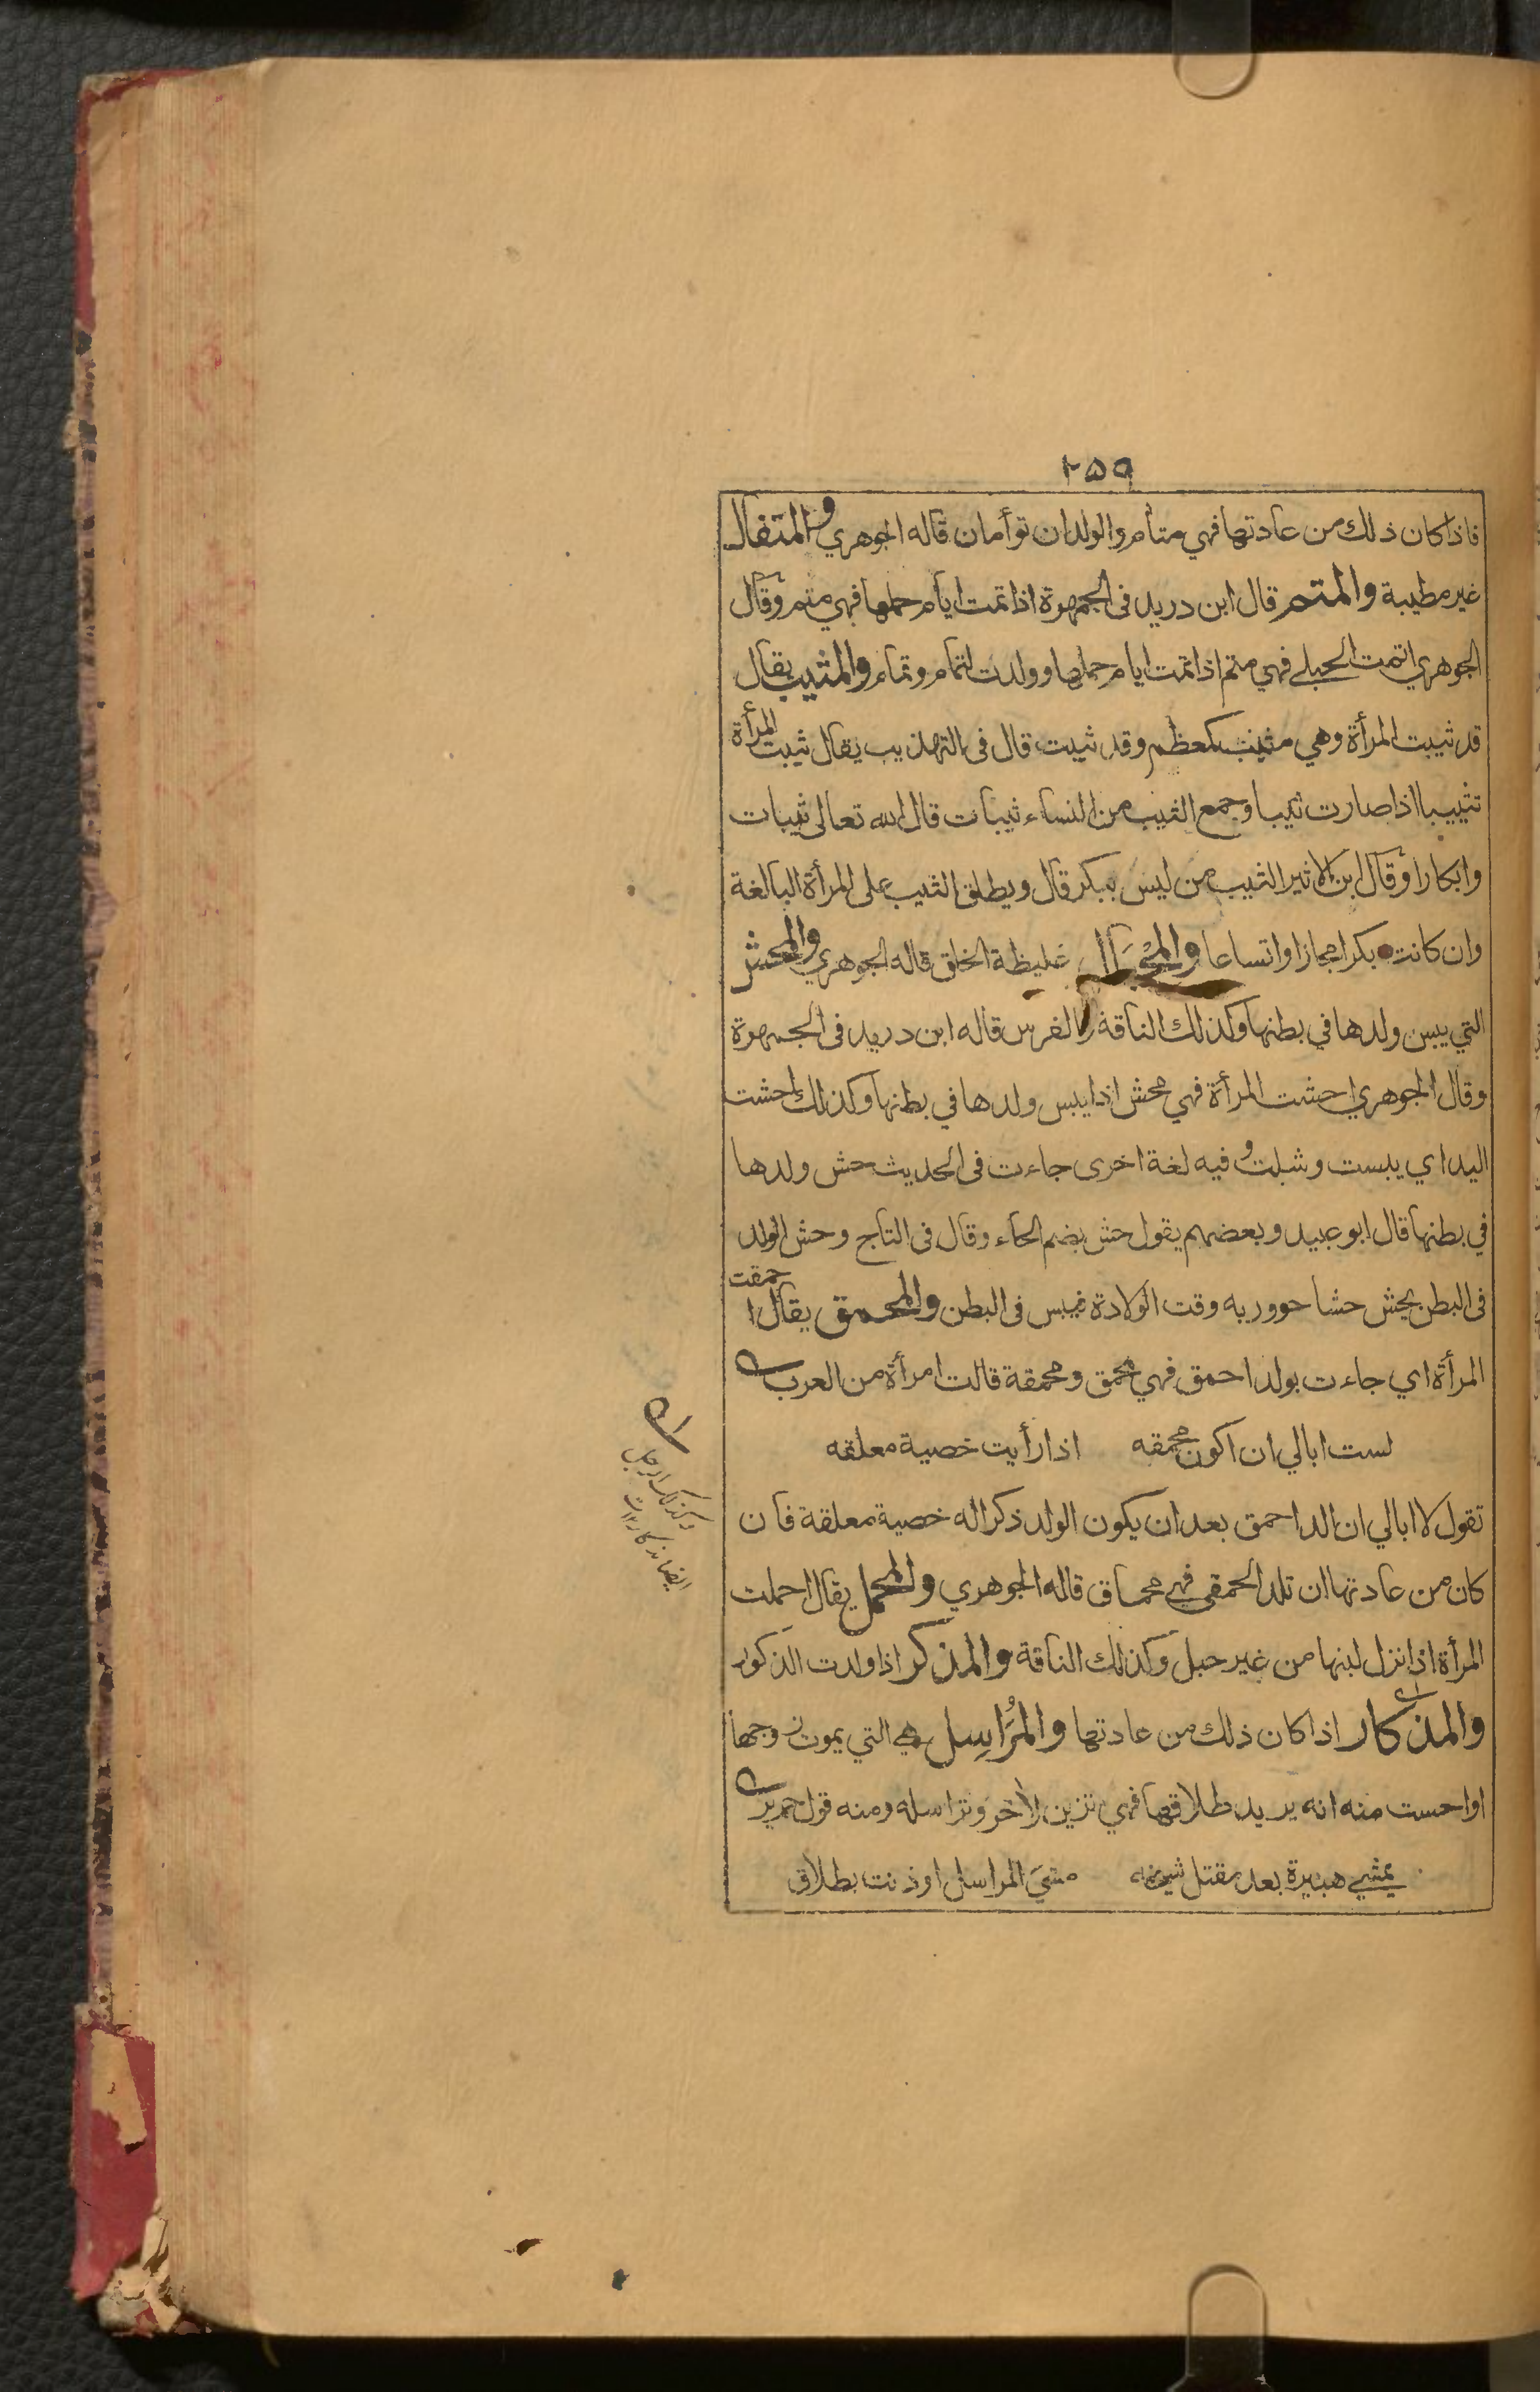 ٢٥٩
فاذا كان ذلك من عادتها فهي متأم والولدان توأمان قاله الجوهري والمتفال
غير مطيبة والمتم قال ابن دريد فى الجمهرة اذا تمت ايام حملها فهي متم وقال
الجوهري اتمت الحبلى فهي متم اذا تمت ايام حملها وولدت لتمام وتمام والمثيب يقال
قد ثيبت المرأة وهي مثيب كمعظم وقد ثيبت قال فى التهذيب يقال ثيبت المرأة
تثييبا اذا صارت ثيبا وجمع الثيب من النساء ثيبات قال الله تعالى ثيبات
وابكارا وقال ابن الاثير الثيب من ليس ببكر قال ويطلق الثيب على المرأة البالغة
وان كانت بكرا مجازا واتساعا والمجبال غليظة الخلق قاله الجوهري والمحش
التي يبس ولدها في بطنها وكذلك الناقة والفرس قاله ابن دريد فى الجمهرة
وقال الجوهري احشت المرأة فهي محش اذا يبس ولدها في بطنها وكذلك احشت
اليد اي يبست وشلت وفيه لغة اخرى جاءت فى الحديث حش ولدها
في بطنها قال ابو عبيد وبعضهم يقول حش بضم الحاء وقال فى التاج وحش الولد
فى البطن يحش حشا جوور به وقت الولادة فيبس فى البطن والمحمق يقال احمقت
المرأة اي جاءت بولد احمق فهي محمق ومحمقة قالت امرأة من العرب
لست ابالي ان اكون محمقه اذا رأيت خصية معلقه
تقول لا ابالي ان الد احمق بعد ان يكون الولد ذكرا له خصية معلقة فان
كان من عادتها ان تلد الحمقى فهي محماق قاله الجوهري والمحمل يقال احملت
المرأة اذا نزل لبنها من غير حبل وكذلك الناقة والمذكر اذا ولدت الذكور
والمذكار اذا كان ذلك من عادتها والمُرَاسِل هي التي يموت زوجها
او احست منه انه يريد طلاقها فهي تزين لآخر وتراسله ومنه قول جرير
يمشي هبيرة بعد مقتل شيخه مشيَ المراسل اوذنت بطلاق
وكذلك الرجل
ايضا مذكار